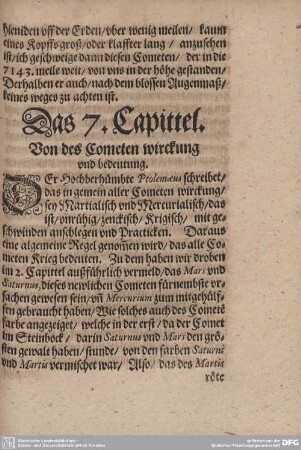 hieniden vff der Erden/ vber wenig meilen/ kaum
eines Kopffs groß/ oder klaffter lang/ anzusehen
ist/ ich geschweige dann diesen Cometen/ der in die
7143. meile weit/ von vns in der höhe gestanden/
Derhalben er auch/ nach dem blossen Augenmaß/
keines weges zu achten ist.
Das 7. Capittel.
Von des Cometen wirckung
vnd bedeutung.
DEr Hochberhümbte Ptolemæus schreibet/
das in gemein aller Cometen wirckung/
sey Martialisch vnd Mercurialisch/ das
ist/ vnrühig/ zenckisch/ Krigisch/ mit ge-
schwinden anschlegen vnd Practicken. Daraus
eine algemeine Regel genom̃en wird/ das alle Co-
meten Krieg bedeuten. Zu dem haben wir droben
im 2. Capittel außführlich vermeld/ das Mars vnd
Saturnus, dieses newlichen Cometen fürnembste vr-
sachen gewesen sein/ vñ Mercurium zum mitgehülf-
fen gebraucht haben/ Wie solches auch des Cometẽ
farbe angezeiget/ welche in der erst/ da der Comet
im Steinbock/ darin Saturnus vnd Mars den grö-
sten gewalt haben/ stunde/ von den farben Saturni
vnd Martis vermischet war/ Also/ das des Martis
röte